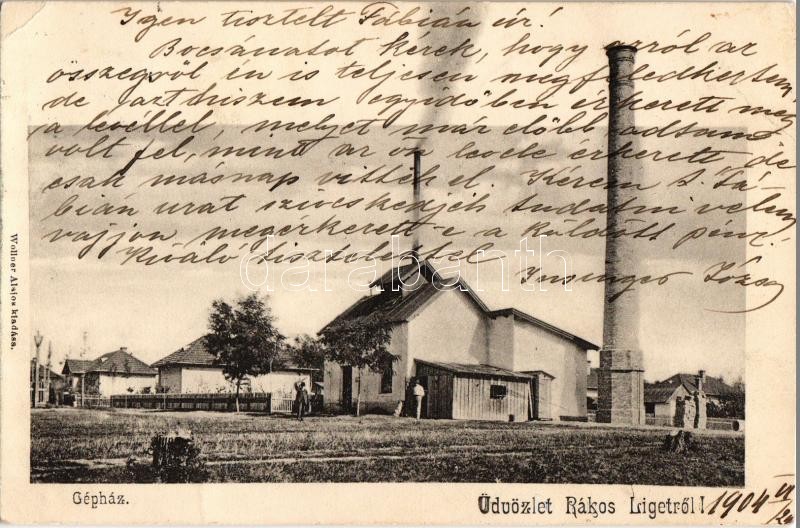 Igen tisztelt Fábián úr!
Bocsánatot kérek, hogy arról az
összegről én is teljesen megfeledkeztem,
de azt hiszem egyidőben érkezett meg
a levéllel, melyet már előbb adtam
volt fel, mint az ön levele érkezett, de
csak másnap vitték el. Kérem t. Fá-
bián urat szíveskedjék tudatni velem
vajjon megérkezett-e a küldött pénz.
Kiváló tisztelettel
Józsa
darabanth
Wollner Alajos kiadása.
Gépház.
Üdvözlet Rákos Ligetről!
1904